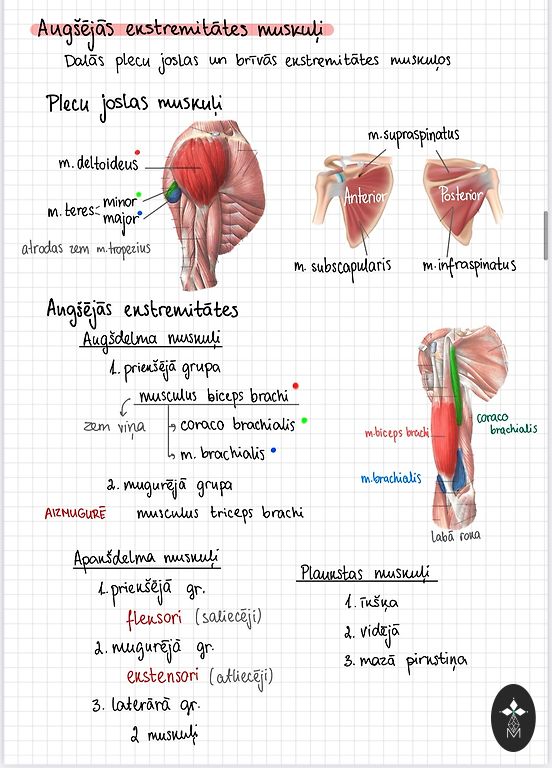 Augšējās ekstremitātes muskuļi
Dalās plecu joslas un brīvās ekstremitātes muskuļos
Plecu joslas muskuļi
m. deltoideus
m. teres- minor
major
atrodas zem m.trapezius
m. supraspinatus
Anterior
Posterior
m. subscapularis
m. infraspinatus
Augšējās ekstremitātes
Augšdelma muskuļi
1. priekšējā grupa
musculus biceps brachi
zem viņa
coraco brachialis
m. brachialis
2. mugurējā grupa
AIZMUGURĒ musculus triceps brachi
m.biceps brachi
coraco
brachialis
m.brachialis
labā roka
Apakšdelma muskuļi
1. priekšējā gr.
fleksori (saliecēji)
2. mugurējā gr.
ekstensori (atliecēji)
3. laterārā gr.
2 muskuļi
Plaukstas muskuļi
1. īkšķa
2. vidējā
3. mazā pirkstiņa
M